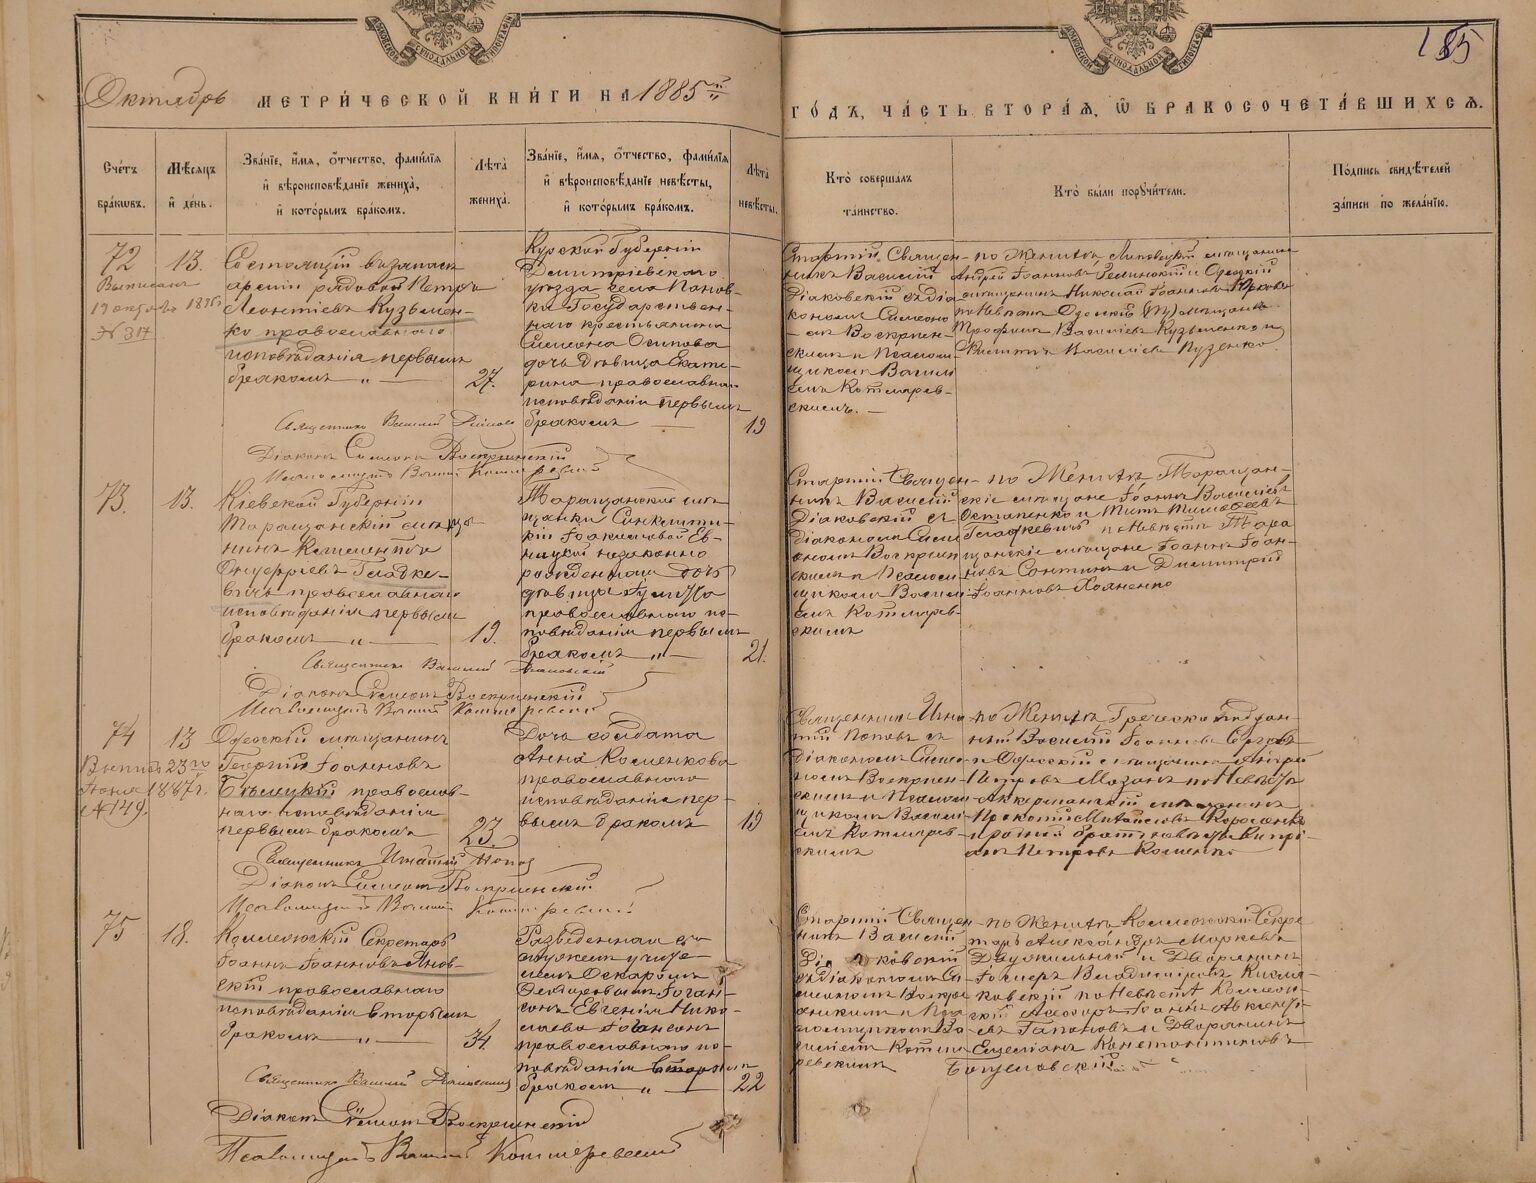 185
Октябрь МЕТРИ́ЧЕСКОЙ КНИ́ГИ НА 1885й ГО́ДЪ, ЧА́СТЬ ВТОРА́Я, Ѿ БРАКОСОЧЕТА́ВШИХСЯ.
Сче́тъ бра́кѡвъ.
Мѣ́сяцъ и́ де́нь.
Зва́нїе, и́мя, о́тчество, фами́лїя и́ вѣроисповѣ́данїе жениха̀, и́ кото́рымъ бра́комъ.
Лѣта̀ жениха̀.
Зва́нїе, и́мя, о́тчество, фами́лїя и́ вѣроисповѣ́данїе невѣ́сты, и́ кото́рымъ бра́комъ.
Лѣта̀ невѣ́сты.
Кто̀ соверша́лъ та́инство.
Кто̀ бы́ли поручи́тели.
По́дпись свидѣ́телей за́писи по жела́нїю.
72
Выписанъ
№ 317
13.
Состоящій въ запасѣ
арміи рядовой Петръ
Леонтіевъ Кузьмен-
ко православнаго
исповѣданія первымъ
бракомъ „ —
27.
Курской Губерніи
Дмитріевскаго
уѣзда села Панов-
ки Государствен-
наго крестьянина
Симеона Осипова
дочь дѣвица Екате-
рина православнаго
исповѣданія первымъ
бракомъ —
19
Старшій Священ-
никъ Василій
Діаковскій съ діа-
кономъ Симеоно-
мъ Воскресен-
скимъ и Псаломщи-
щикомъ Васили-
емъ Котляревскимъ
скимъ. —
по Женихѣ
Андрей Іоанновъ
мѣщанинъ Николай Іоанновъ
по Невѣстѣ
Трофимъ Василіевъ Кузьменко и
Василіевъ Пузенко
Священникъ Василій
Діаконъ Симеонъ Воскресенскій
Псаломщикъ Василій Котляревскій
73.
13.
Кіевской Губерніи
Таращанскій мѣща-
нинъ Климентій
Онуфріевъ Гладке-
вичъ православнаго
исповѣданія первымъ
бракомъ „ —
19.
Таращанской мѣ-
щанки
незаконно
рожденная дочь
дѣвица
православнаго ис-
повѣданія первымъ
бракомъ „ —
21.
Старшій Священ-
никъ Василій
Діаковскій съ
діакономъ Симе-
ономъ Воскресен-
скимъ и Псалом-
щикомъ Васили-
емъ Котлярев-
скимъ
по Женихѣ Таращан-
скіе мѣщане Іоаннъ Василіевъ
Остапенко и Титъ
Гладкевичъ по Невѣстѣ Тара-
щанскіе мѣщане Іоаннъ Іоан-
новъ и Димитрій
Іоанновъ
Священникъ Василій Діаковскій
Діаконъ Симеонъ Воскресенскій
Псаломщикъ Василій Котляревскій
74
Выпись 23го
1887г.
№ 149.
13
Одесскій мѣщанинъ
Георгій Іоанновъ
Бѣлецкій православ-
наго исповѣданія
первымъ бракомъ
23.
Дочь солдата
Анна Косменкова
православнаго
исповѣданія пер-
вымъ бракомъ
19
Священникъ Игна-
тій Поповъ съ
діакономъ Симео-
номъ Воскресен-
скимъ и Псалом-
щикомъ Васили-
емъ Котлярев-
скимъ
по Женихѣ Греческо поддан-
ный Василій Іоанновъ
и Одесскій мѣщанинъ Андрей
Петровъ по Невѣстѣ
Аккерманскій мѣщанинъ
Прокопій
и родной братъ невѣсты
Петровъ Косменко
Священникъ Игнатій Поповъ
Діаконъ Симеонъ Воскресенскій
Псаломщикъ Василій Котляревскій
75
18.
Коллежскій Секретарь
Іоаннъ Іоанновъ Янов-
скій православнаго
исповѣданія вторымъ
бракомъ „ —
34.
Разведенная съ
мужемъ учите-
лемъ Оскаромъ
Іоган-
сонъ Евгенія Нико-
лаева Іогансонъ
православнаго ис-
повѣданія вторымъ
бракомъ „ —
22
Старшій Священ-
никъ Василій
Діаковскій
съ діакономъ Си-
меономъ Воскре-
сенскимъ и Пса-
ломщикомъ Ва-
силіемъ Котля-
ревскимъ
по Женихѣ Коллежскій Секре-
тарь Александръ Марковъ
и Дворянинъ
Владиміровъ
по Невѣстѣ Коллеж-
скій Асессоръ Іоаннъ
Гапоновъ и Дворянинъ
Емеліанъ Константиновъ
Богуславскій
Священникъ Василій Діаковскій
Діаконъ Симеонъ Воскресенскій
Псаломщикъ Василій Котляревскій